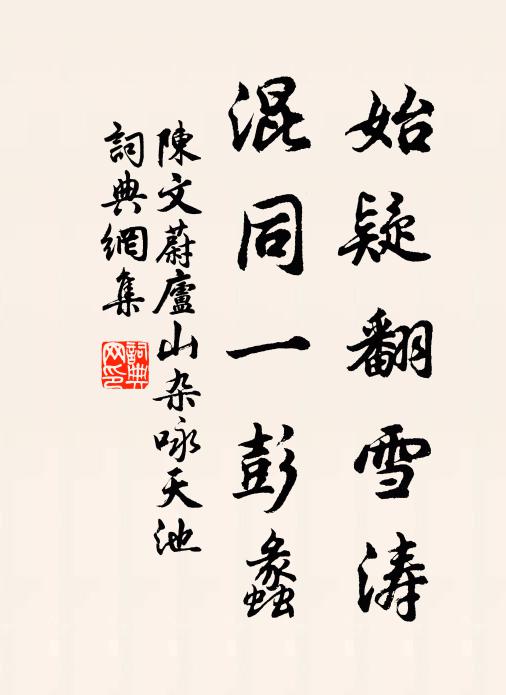 始疑翻雪涛
混同一彭蠡
陳文蔚廬山杂咏天池
詞典網集
詞典網印